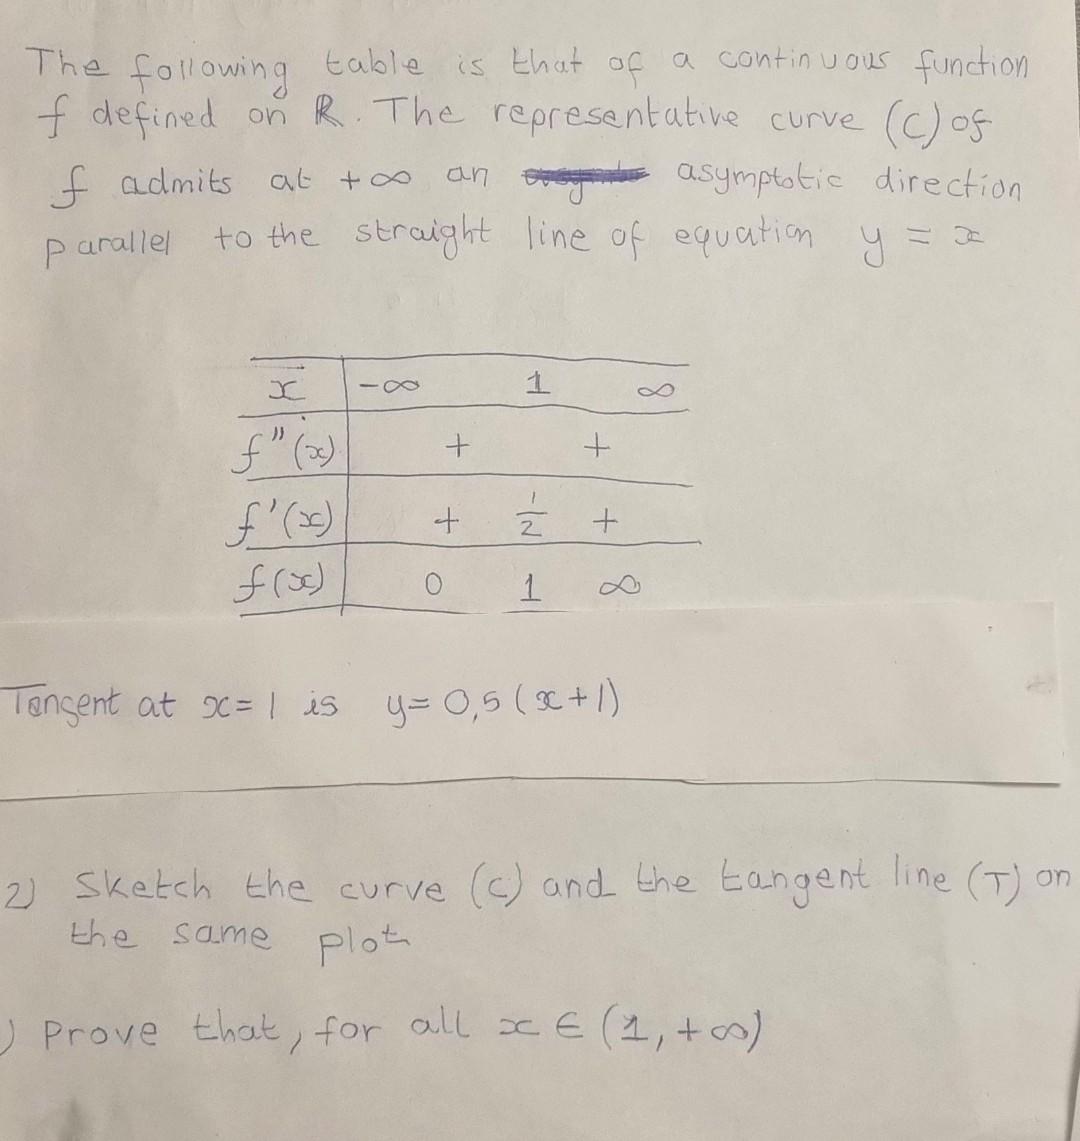 The following table is that of a continuous function
f defined on ℝ. The representative curve (C) of
f admits at +∞ an asymptotic direction
parallel to the straight line of equation y = x
x -∞ 1 ∞
f"(x) + +
f'(x) + 1/2 +
f(x) 0 1 ∞
Tangent at x=1 is y=0,5(x+1)
2) Sketch the curve (C) and the tangent line (T) on
the same plot
) Prove that, for all x ∈ (1,+∞)